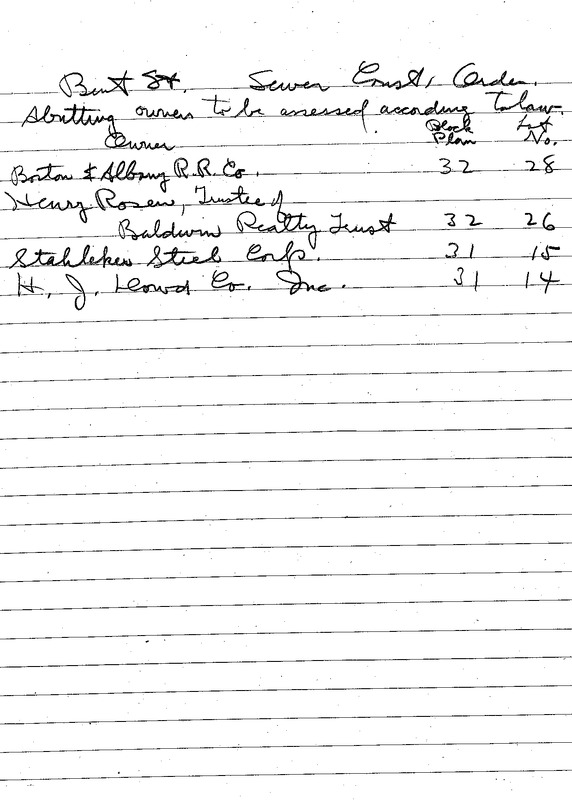 Bent St. Sewer Const. Order.
Abutting owners to be assessed according to law.
Owner Block Plan Lot No.
Boston & Albany R.R. Co. 32 28
Henry Rosen, Trustee of
Baldwin Realty Trust 32 26
Stahleker Steel Corp. 31 15
H. J. Dowd Co. Inc. 31 14